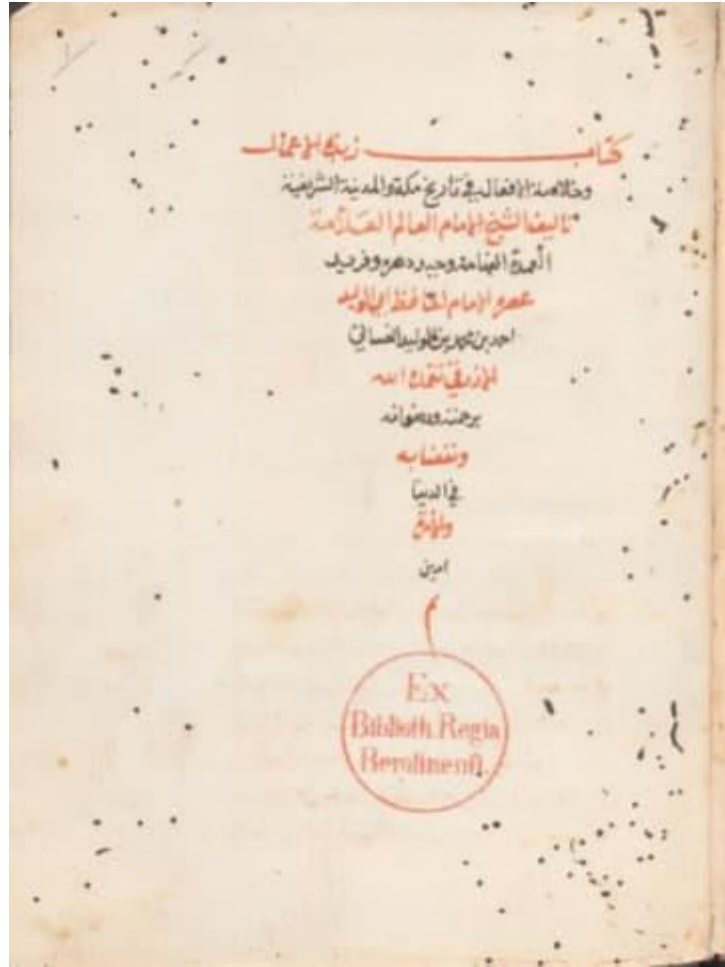 كتاب زبدة الاعمال
وخلاصة الافعال في تاريخ مكة والمدينة الشريفة
تاليف الشيخ الامام العالم العلامة
العمدة الفهامة وحيد دهره وفريد
عصره الامام الحافظ ابي الوليد
احمد بن محمد بن الوليد الغساني
الازرقي تغمده الله
برحمته ورضوانه
ونفعنا به
في الدنيا
والاخرة
امين
م
Ex
Biblioth. Regia
Berolinensi.